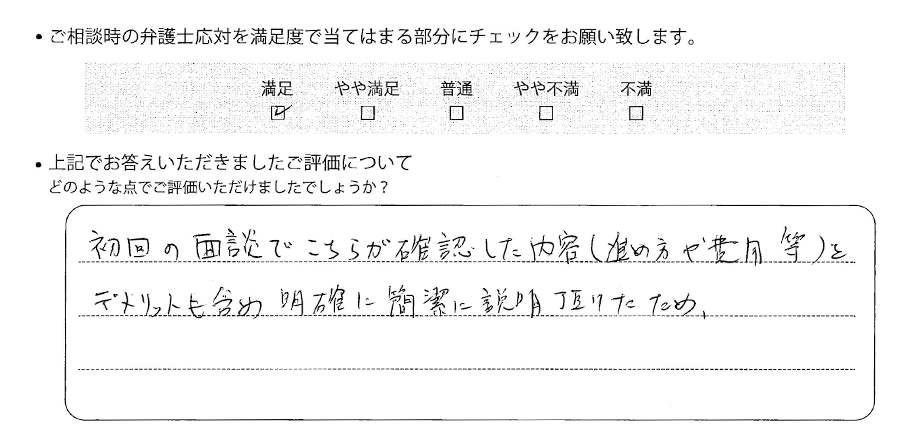 • ご相談時の弁護士応対を満足度で当てはまる部分にチェックをお願い致します。
満足 やや満足 普通 やや不満 不満
• 上記でお答えいただきましたご評価について
どのような点でご評価いただけましたでしょうか？
初回の面談でこちらが確認した内容(進め方や費用 等)を
デメリットも含め 明確に簡潔に説明頂けたため、